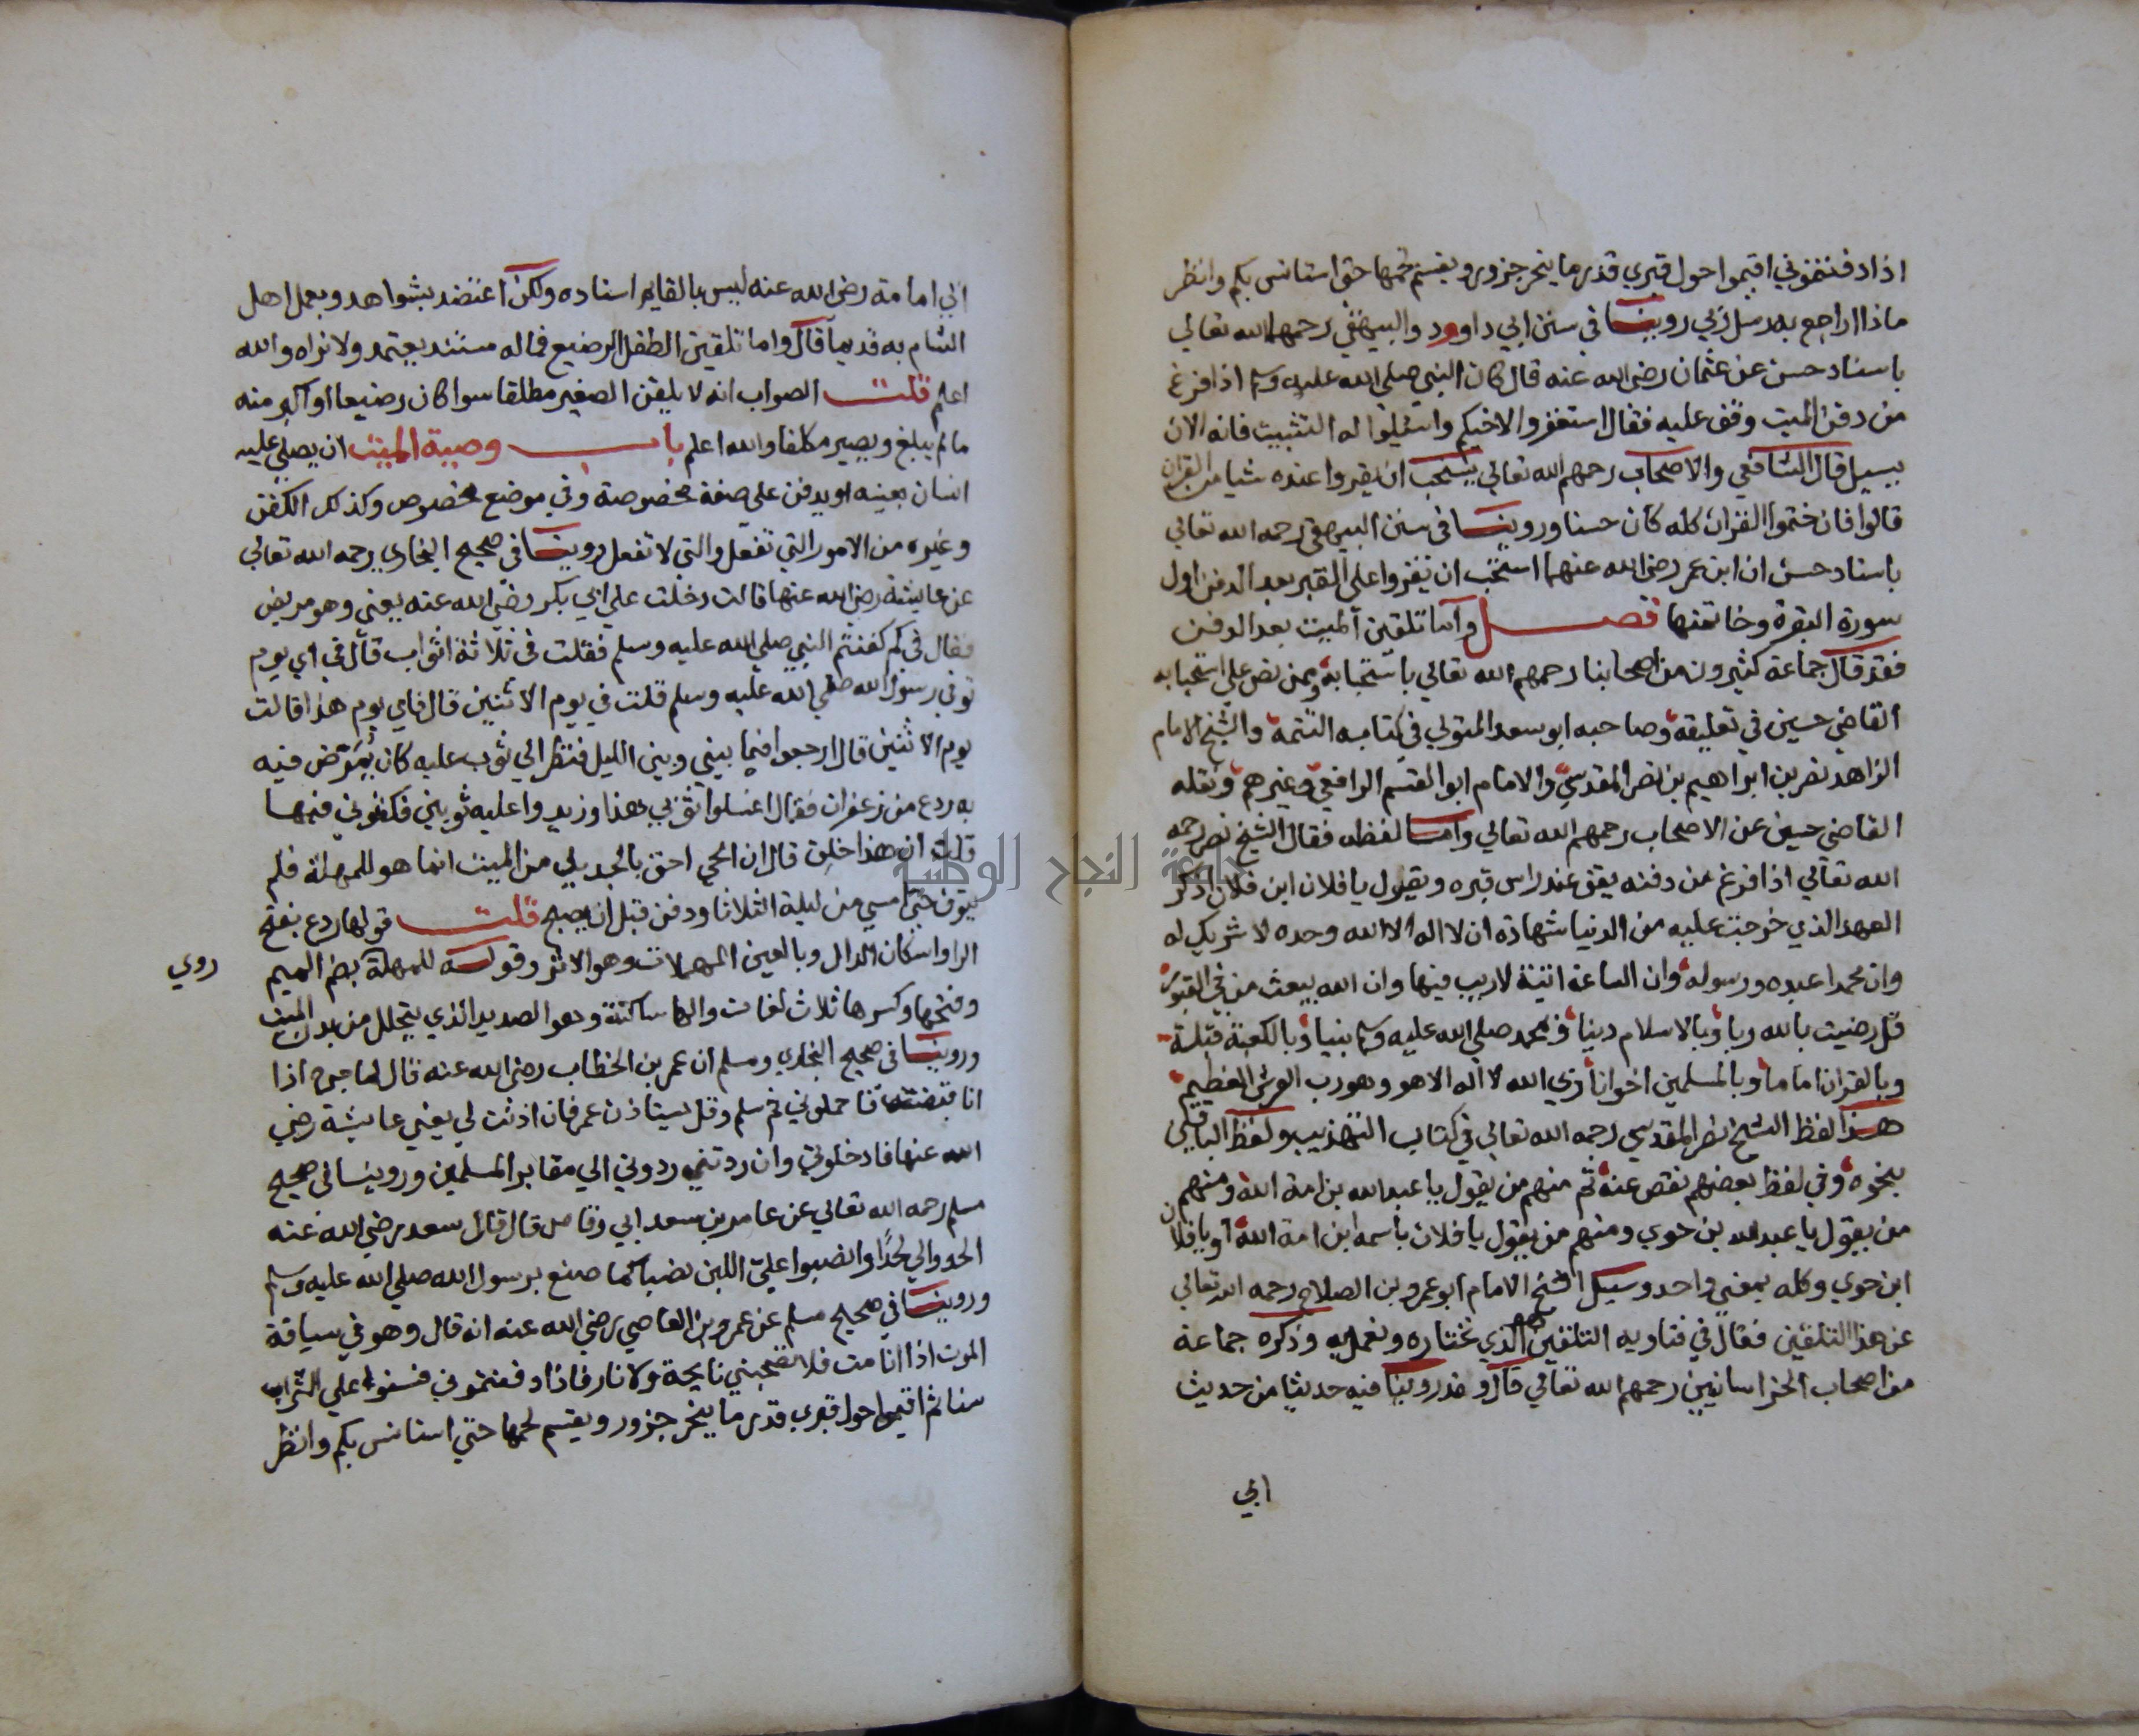 اذا دفنتموني اقيموا حول قبري قدر ما ينحر جزور ويقسم لحمها حتى استانس بكم وانظر
ماذا اراجع به رسل ربي روينا في سنن ابي داوود والبيهقي رحمهما الله تعالي
باسناد حسن عن عثمان رضي الله عنه قال كان النبي صلي الله عليه وسلم اذا فرغ
من دفن الميت وقف عليه فقال استغفروا لاخيكم واسئلوا له التثبيت فانه الان
يسيل قال الشافعي والاصحاب رحمهم الله تعالي يستحب ان يقروا عنده شيا من القران
قالوا فان ختموا القران كله كان حسنا وروينا في سنن البيهقي رحمه الله تعالي
باسناد حسن ان ابن عمر رضي الله عنهما استحب ان يقروا علي القبر بعد الدفن اول
سورة البقرة وخاتمتها فصل واما تلقين الميت بعد الدفن
فقد قال جماعة كثيرون من اصحابنا رحمهم الله تعالي باستحبابه وممن نص علي استحبابه
القاضي حسين في تعليقه وصاحبه ابو سعد المتولي في كتابه التتمة والشيخ الامام
الزاهد نصر بن ابراهيم بن نصر المقدسي والامام ابو القسم الرافعي وغيرهم ونقله
القاضي حسين عن الاصحاب رحمهم الله تعالي واما لفظه فقال الشيخ نصر رحمه
الله تعالي اذا فرغ من دفنه يقف عند راس قبره ويقول يا فلان ابن فلان اذكر
العهد الذي خرجت عليه من الدنيا شهادة ان لا اله الا الله وحده لا شريك له
وان محمدا عبده ورسوله وان الساعة اتية لا ريب فيها وان الله يبعث من في القبور
قل رضيت بالله ربا وبالاسلام دينا وبمحمد صلي الله عليه وسلم نبيا وبالكعبة قبلة
وبالقران اماما وبالمسلمين اخوانا ربي الله لا اله الا هو وهو رب العرش العظيم
هذا لفظ الشيخ نصر المقدسي رحمه الله تعالي في كتاب التهذيب ولفظ الباقين
بنحوه وفي لفظ بعضهم نقص عنه ثم منهم من يقول يا عبد الله بن امة الله ومنهم
من يقول يا عبد الله بن حوي ومنهم من يقول يا فلان باسمه ابن امة الله او يا فلان
ابن حوي وكله بمعني واحد وسيل الشيخ الامام ابو عمرو بن الصلاح رحمه الله تعالي
عن هذا التلقين فقال في فتاويه التلقين هو الذي نختاره ونعمل به وذكره جماعة
من اصحاب الخراسانيين رحمهم الله تعالي قال وقد روينا فيه حديثا من حديث
ابي
ابي امامة رضي الله عنه ليس بالقايم اسناده ولكن اعتضد بشواهد وبعمل اهل
الشام به قديما قال واما تلقين الطفل الرضيع فما له مستند يعتمد ولا نراه والله
اعلم قلت الصواب انه لا يلقن الصغير مطلقا سوا كان رضيعا او اكبر منه
ما لم يبلغ ويصير مكلفا والله اعلم باب وصية الميت ان يصلي عليه
انسان بعينه او يدفن علي صفة مخصوصة وفي موضع مخصوص وكذلك الكفن
وغيره من الامور التي تفعل والتي لا تفعل روينا في صحيح البخاري رحمه الله تعالي
عن عايشة رضي الله عنها قالت دخلت علي ابي بكر رضي الله عنه يعني وهو مريض
فقال في كم كفنتم النبي صلي الله عليه وسلم فقلت في ثلاثة اثواب قال في اي يوم
توفي رسول الله صلي الله عليه وسلم قلت في يوم الاثنين قال فاي يوم هذا قالت
يوم الاثنين قال ارجوا فيما بيني وبين الليل فنظر الي ثوب عليه كان يمرض فيه
به ردع من زعفران فقال اغسلوا ثوبي هذا وزيدوا عليه ثوبين فكفنوني فيهما
قلت ان هذا خلق قال ان الحي احق بالجديد من الميت انما هو للمهلة فلم
يتوف حتي امسي من ليلة الثلاثا ودفن قبل ان يصبح قلت قولها ردع بفتح
الرا واسكان الدال وبالعين المهملات وهو الاثر وقوله للمهلة بضم الميم
وفتحها وكسرها ثلاث لغات والها ساكنة وهو الصديد الذي يتحلل من بدن الميت
وروينا في صحيح البخاري ومسلم ان عمر بن الخطاب رضي الله عنه قال لما جرح اذا
انا قبضت فاحملوني ثم سلم وقل يستاذن عمر فان اذنت لي يعني عايشة رضي
الله عنها فادخلوني وان ردتني ردوني الي مقابر المسلمين وروينا في صحيح
مسلم رحمه الله تعالي عن عامر بن سعد ابي وقاص قال قال سعد رضي الله عنه
الحدوا لي لحدا وانصبوا علي اللبن نصبا كما صنع برسول الله صلي الله عليه وسلم
وروينا في صحيح مسلم عن عمرو بن العاصي رضي الله عنه انه قال وهو في سياقة
الموت اذا انا مت فلا تصحبني نايحة ولا نار فاذا دفنتموني فسنوا علي التراب
سنا ثم اقيموا حول قبري قدر ما ينحر جزور ويقسم لحمها حتي استانس بكم وانظر
روي
جامعة النجاح الوطنية